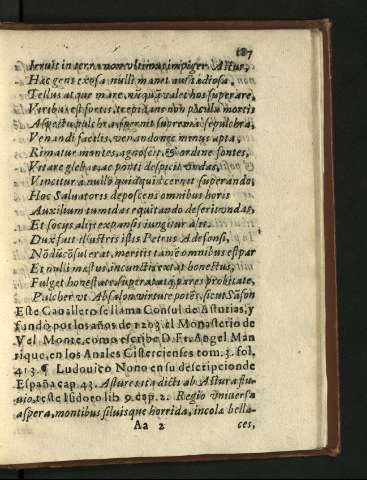 187
Irruit in terra non ultimus impiger Astur,
Hæc gens exosa nulli manet aut tædiosa,
Tellus atque mare, nũquã valet hos superare,
Viribus est fortis, trepidans non pocula mortis
Aspectu pulchra, spernit suprema sepulchra,
Venandi facilis, venandonec minus apta,
Rimatur montes, agnoscit, & ordine fontes,
Vt rate glebas, ac ponti despicit vndas,
Vincitur à nullo quidquid cernet superando,
Hæc Saluatoris deposcens omnibus horis
Auxilium tumidas equitando deserit vndas,
Et socys alijs expansis iungitur alis.
Dux fait illustris istis Petrus Adefonsi,
Nõdũ cõsul erat, meritis tamẽ omnibus est par
Et nulli mæstus, in cunctis extat honestus,
Fulget honestate superabatq; pares probitate,
Pulcher vt Absalon virtute potẽs, sicut Sãson
Este Cauallero se llama Consul de Asturias, y
fundò por los años de 1203. el Monasterio de
Vel Monte, como escribe D. Fr. Angel Man
rique, en los Anales Cistercienses tom. 3. fol.
413. ¶ Ludouico Nono en su descripcion de
España cap. 43. Astures ita dicti ab Astura flu-
uio, teste Isidoro lib 9. cap. 2. Regio vniuersa
aspera, montibus siluisque horrida, incolæ bella-
Aa 2 ces,